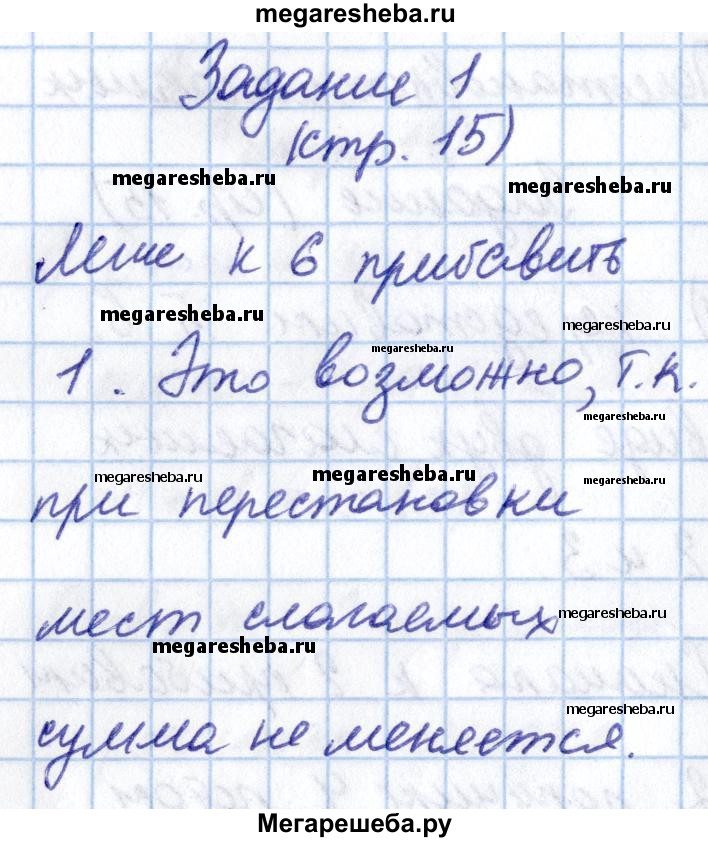 megaresheba.ru
Задание 1
(стр. 15)
megaresheba.ru
megaresheba.ru
Легче к 6 прибавить
megaresheba.ru
megaresheba.ru
megaresheba.ru
1. Это возможно, т.к.
megaresheba.ru
megaresheba.ru
megaresheba.ru
megaresheba.ru
при перестановки
мест слагаемых
megaresheba.ru
megaresheba.ru
megaresheba.ru
сумма не меняется.
Мегарешеба.ру